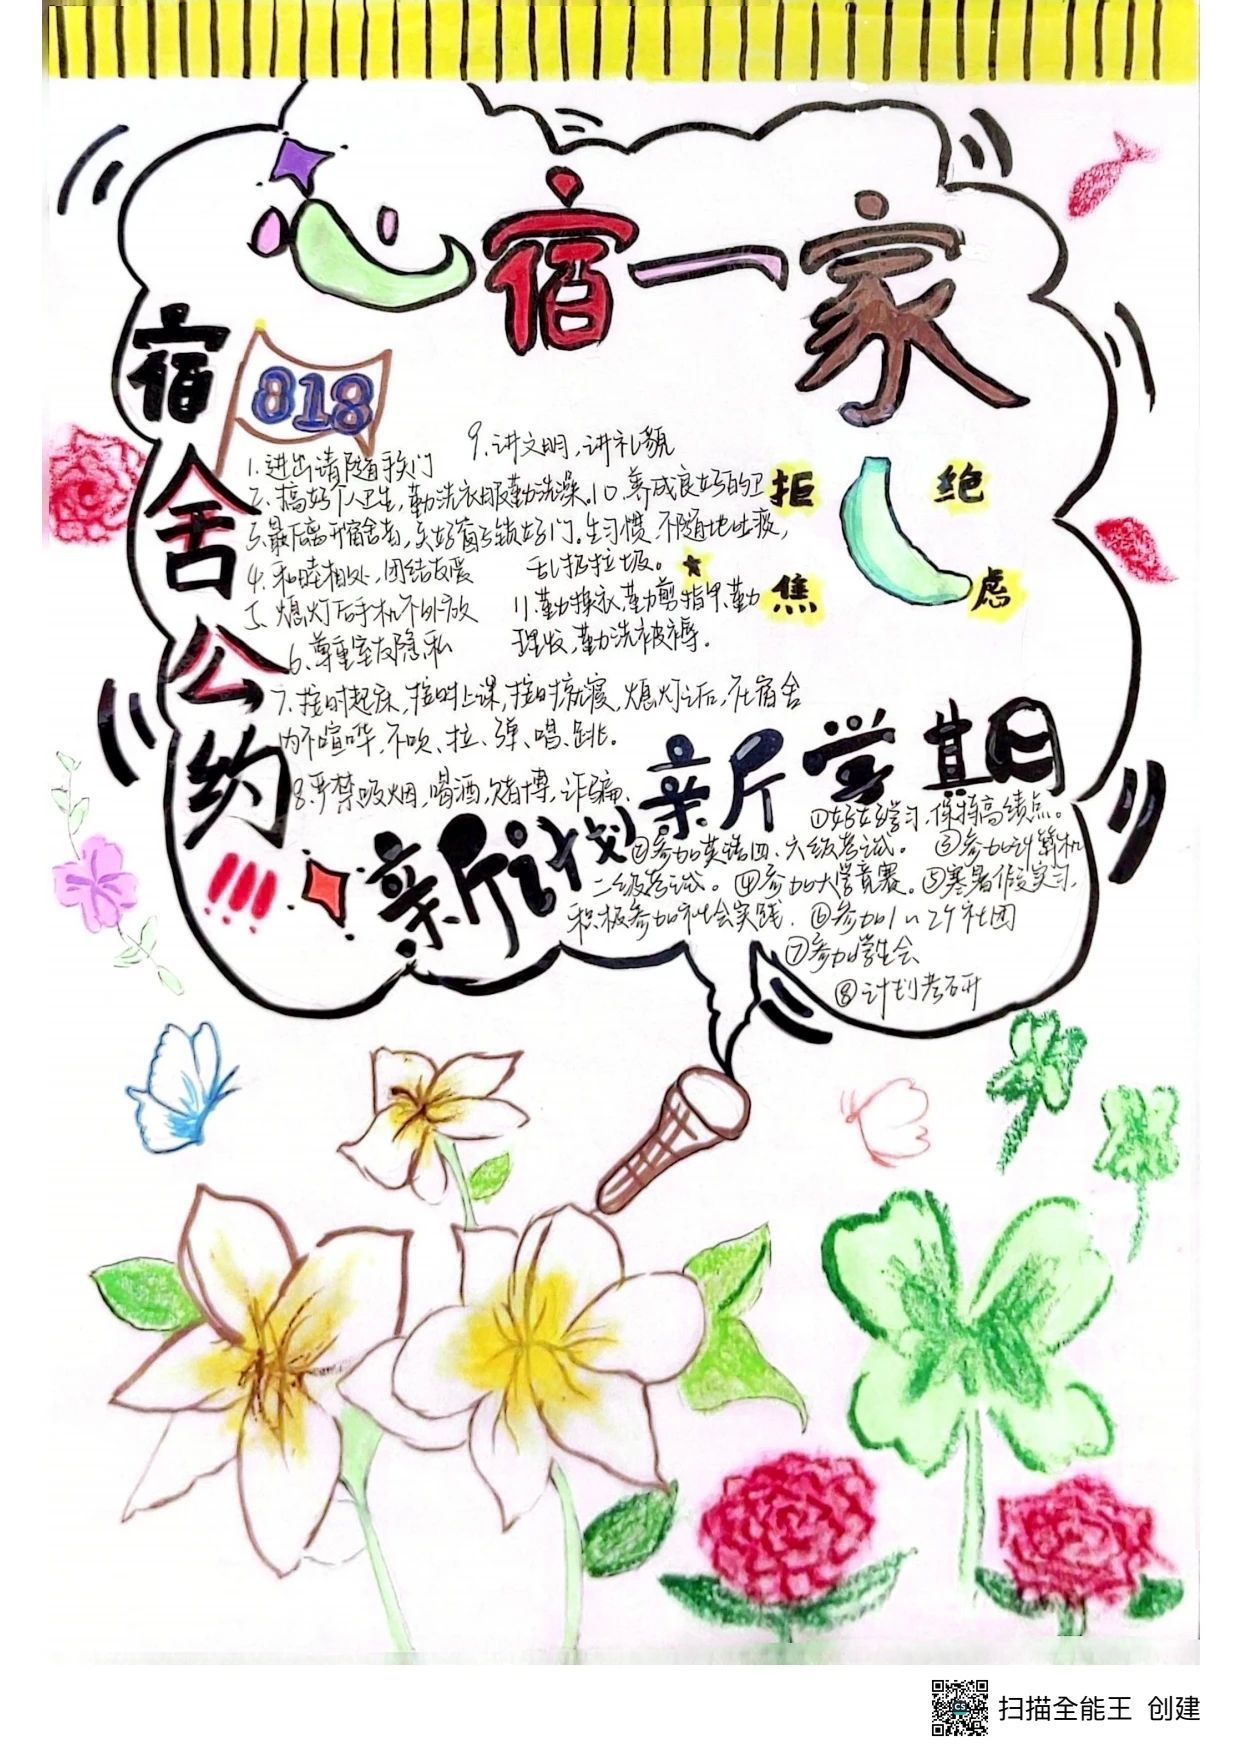 心宿一家
宿舍公约
818
1.进出请随手关门
2.搞好个人卫生，勤洗衣服勤洗澡。
3.最后离开宿舍者，关好窗锁好门。
4.和睦相处，团结友爱
5.熄灯后手机不外放
6.尊重室友隐私
7.按时起床，按时上课，按时就寝，熄灯之后，在宿舍
内不喧哗，不吹、拉、弹、唱、跳。
8.严禁吸烟，喝酒，赌博，诈骗.
9.讲文明，讲礼貌
10.养成良好的卫
生习惯，不随地吐痰，
乱扔垃圾。
11.勤换衣，勤剪指甲，勤
理发，勤洗被褥.
拒绝
焦虑
新学期
新计划
!!!
①好好学习，保持高绩点。
②参加英语四、六级考试。 ③参加计算机
二级考试。④参加大学竞赛。⑤寒暑假实习，
积极参加社会实践. ⑥参加1~2个社团
⑦参加学生会
⑧计划考研
扫描全能王 创建